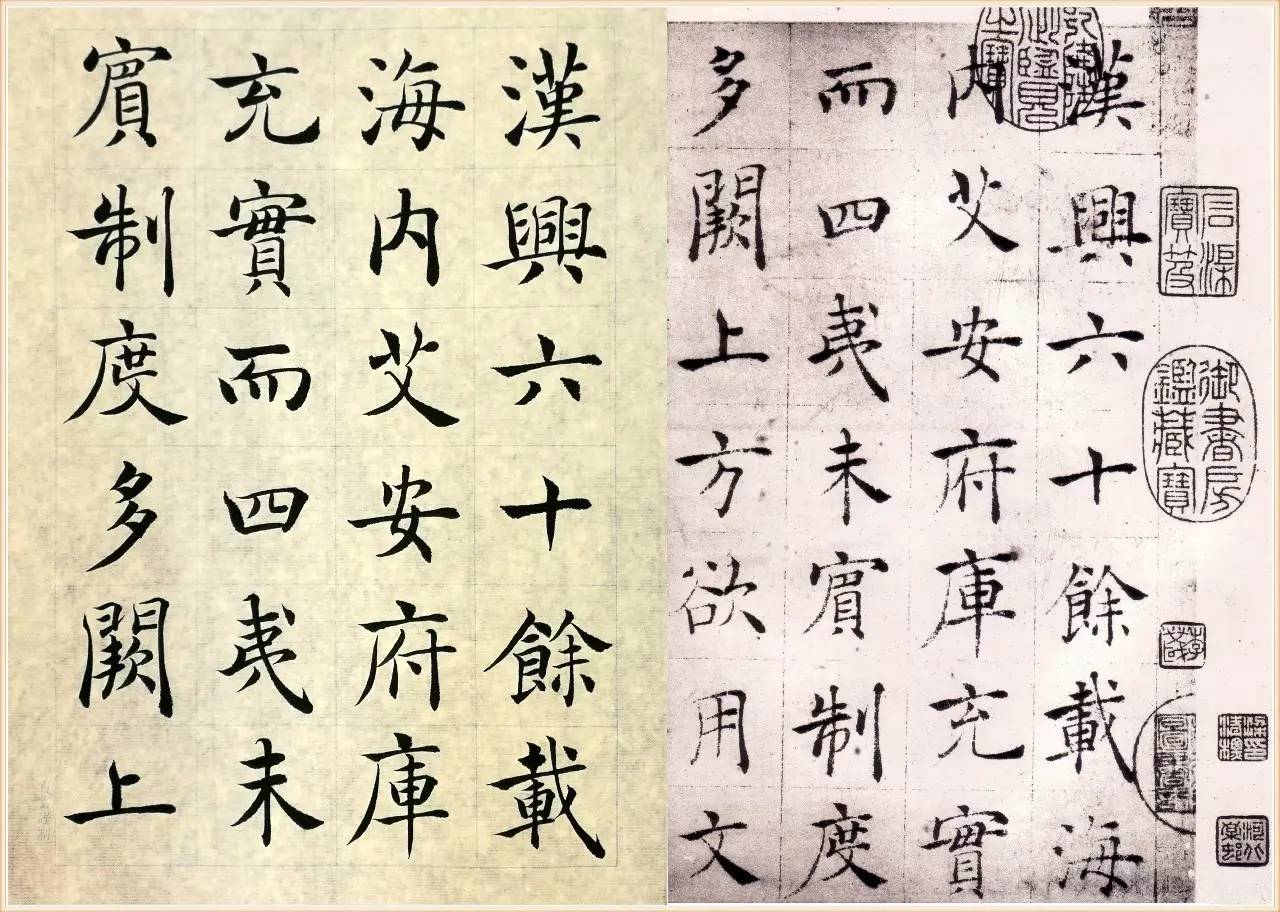 漢興六十餘載
海内艾安府庫
充實而四夷未
賓制度多闕上
漢興六十餘載海
内艾安府庫充實
而四夷未賓制度
多闕上方欲用文
石渠
寶笈
御書房
鑑藏寶